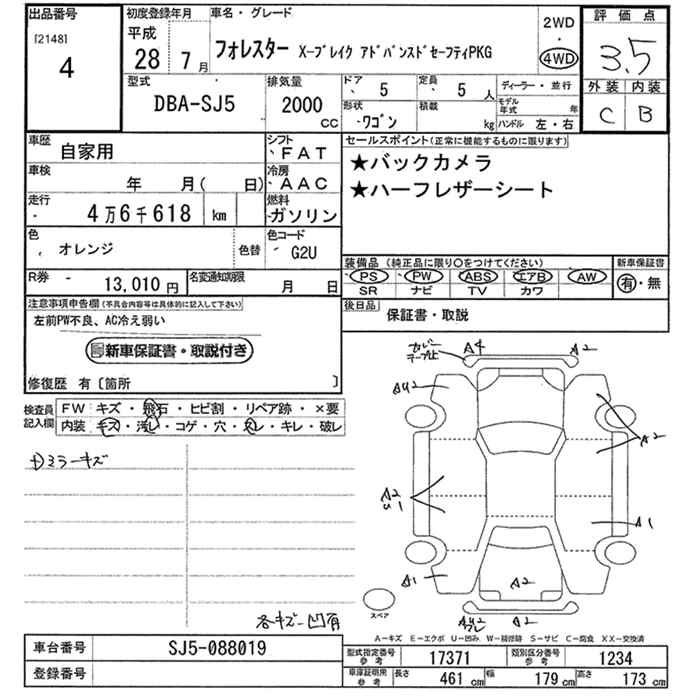 出品番号
[2148]
4
初度登録年月
平成
28 7 月
車名・グレード
フォレスター X-ブレイク アドバンスドセーフティPKG
2WD
・
4WD
評価点
3.5
外装 内装
C B
型式
DBA-SJ5
排気量
2000
CC
ドア
5
定員
5 人
形状
ワゴン
積載
kg
ディーラー・並行
モデル年式 年
ハンドル 左・右
車歴
自家用
シフト
FAT
車検
年 月( 日)
冷房
AAC
走行
4万6千618 km
燃料
ガソリン
色
オレンジ
色替
色コード
G2U
R券
13,010 円
名変通知期限
月 日
セールスポイント(正常に機能するものに限ります)
★バックカメラ
★ハーフレザーシート
装備品 (純正品に限り○をつけてください)
PS PW ABS エアB AW
SR ナビ TV カワ
新車保証書
有・無
後日品
保証書・取説
注意事項申告欄(不具合内容等は具体的に記入して下さい)
左前PW不良、AC冷え弱い
新車保証書・取説付き
修復歴 有〔箇所 〕
検査員記入欄
FW キズ・飛石・ヒビ割・リペア跡・×要
内装 キズ・汚レ・コゲ・穴・スレ・キレ・破レ
ミラーキズ
各キズ凹有
A4 A2
AU2
A2
A2
U1
A1
A1
A2
A2
スペア
A-キズ E-エクボ U-凹み W-補修跡 S-サビ C-腐食 XX-交換済
車台番号
SJ5-088019
登録番号
型式指定番号 参考
17371
類別区分番号 参考
1234
車庫証明用 参考
長さ 461 cm 幅 179 cm 高さ 173 cm